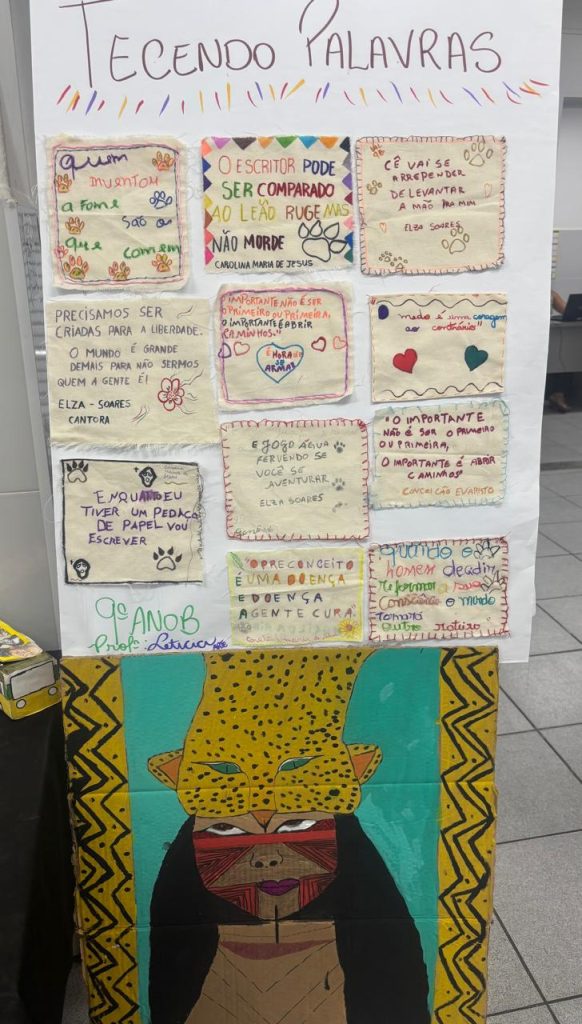 TECENDO PALAVRAS
Quem
inventou
a fome
são os
que comem
O ESCRITOR PODE
SER COMPARADO
AO LEÃO RUGE MAS
NÃO MORDE
CAROLINA MARIA DE JESUS
CÊ VAI SE
ARREPENDER
DE LEVANTAR
A MÃO PRA MIM
ELZA SOARES
PRECISAMOS SER
CRIADAS PARA A LIBERDADE.
O MUNDO É GRANDE
DEMAIS PARA NÃO SERMOS
QUEM A GENTE É!
ELZA - SOARES
CANTORA
IMPORTANTE NÃO É SER
O PRIMEIRO OU PRIMEIRA,
O IMPORTANTE É ABRIR
CAMINHOS."
É HORA DE
SE
ARMAR
"medo é uma coragem
ao contrário"
E JOGO ÁGUA
FERVENDO SE
VOCÊ SE
AVENTURAR
ELZA SOARES
"O IMPORTANTE
NÃO É SER O PRIMEIRO
OU PRIMEIRA,
O IMPORTANTE É ABRIR
CAMINHOS"
CONCEIÇÃO EVARISTO
ENQUANTO EU
TIVER UM PEDAÇO
DE PAPEL VOU
ESCREVER
"O PRECONCEITO
É UMA DOENÇA
E DOENÇA
A GENTE CURA"
Quando o
homem decidir
reformar a sua
consciência o mundo
tomará
outro roteiro
9º ANO B
Profª: Leticia